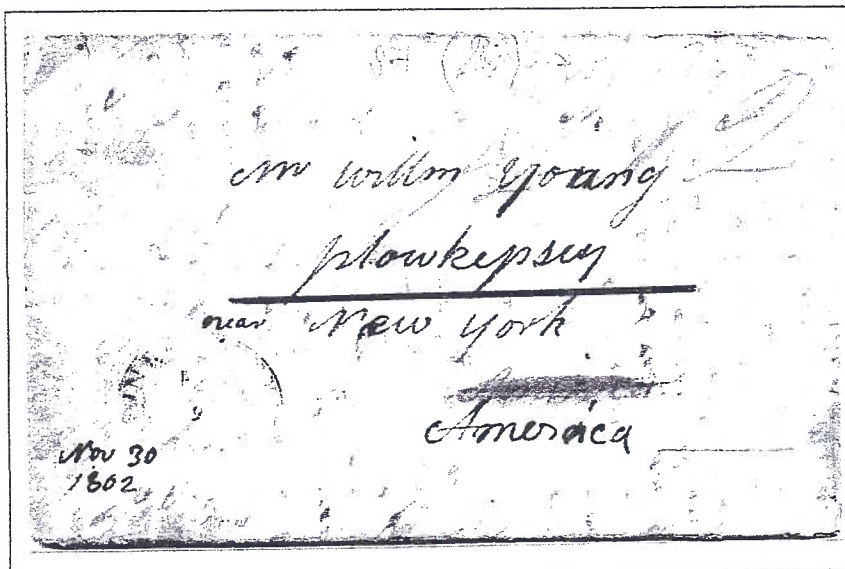 Mr Willm Young
plowkepsey
near New York
America
Nov 30
1802